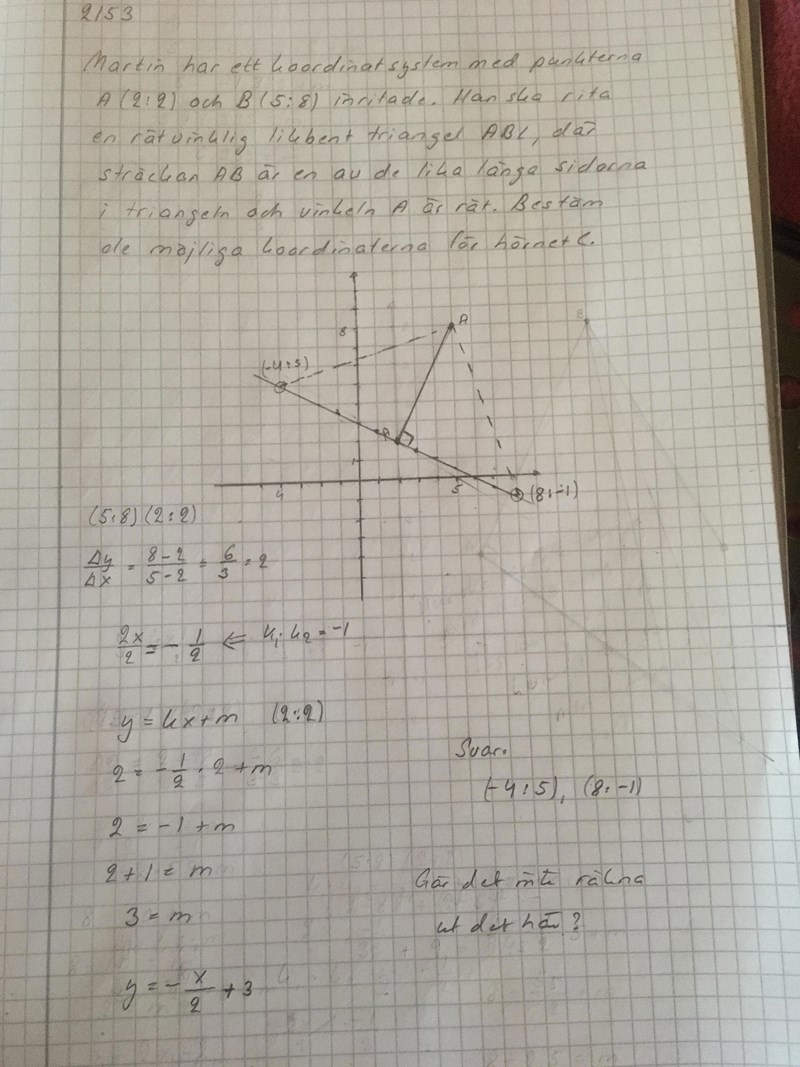 2153
Martin har ett koordinatsystem med punkterna
A (2:2) och B (5:8) inritade. Han ska rita
en rätvinklig likbent triangel ABC, där
sträckan AB är en av de lika långa sidorna
i triangeln och vinkeln A är rät. Bestäm
de möjliga koordinaterna för hörnet C.
8
A
B
(-4:5)
A
1
4
5
(8:-1)
(5:8) (2:2)
Δy/Δx = 8-2/5-2 = 6/3 = 2
2x/2 = -1/2 ⇐ k₁·k₂ = -1
y = kx+m (2:2)
2 = -1/2 · 2 + m
2 = -1 + m
2+1 = m
3 = m
y = -x/2 + 3
Svar.
(-4:5), (8:-1)
Går det inte räkna
ut det här?